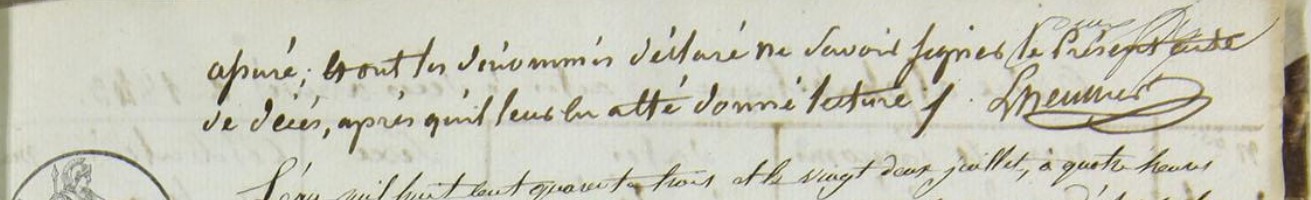 assuré; et ont les dénommés déclaré ne savoir signer le présent acte
de décès, après qu'il leur en atté donné lecture
L'an mil huit cent quarante trois et le vingt deux juillet, à quatre heures